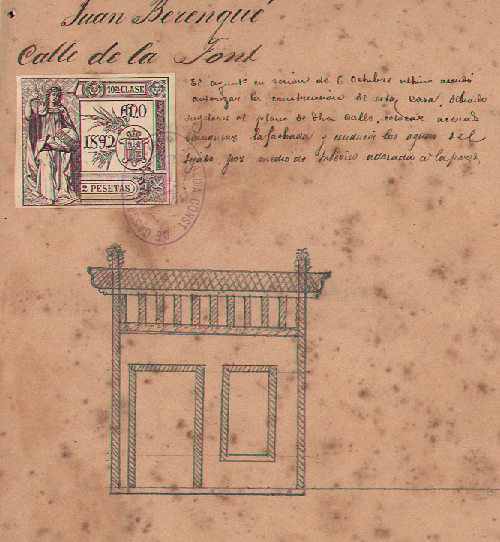 Juan Berengué
Calle de la Font
10ª CLASE
1892
2 PESETAS
El Aynt° en sesion de 6 Octubre último acordó
autorizar la construccion de esta casa, debiendo
sugetarse al plano de dha calle, colocar aceras
blanquear la fachada y conducir las aguas del
tejado por medio de tuberia adosada a la pared
CONST